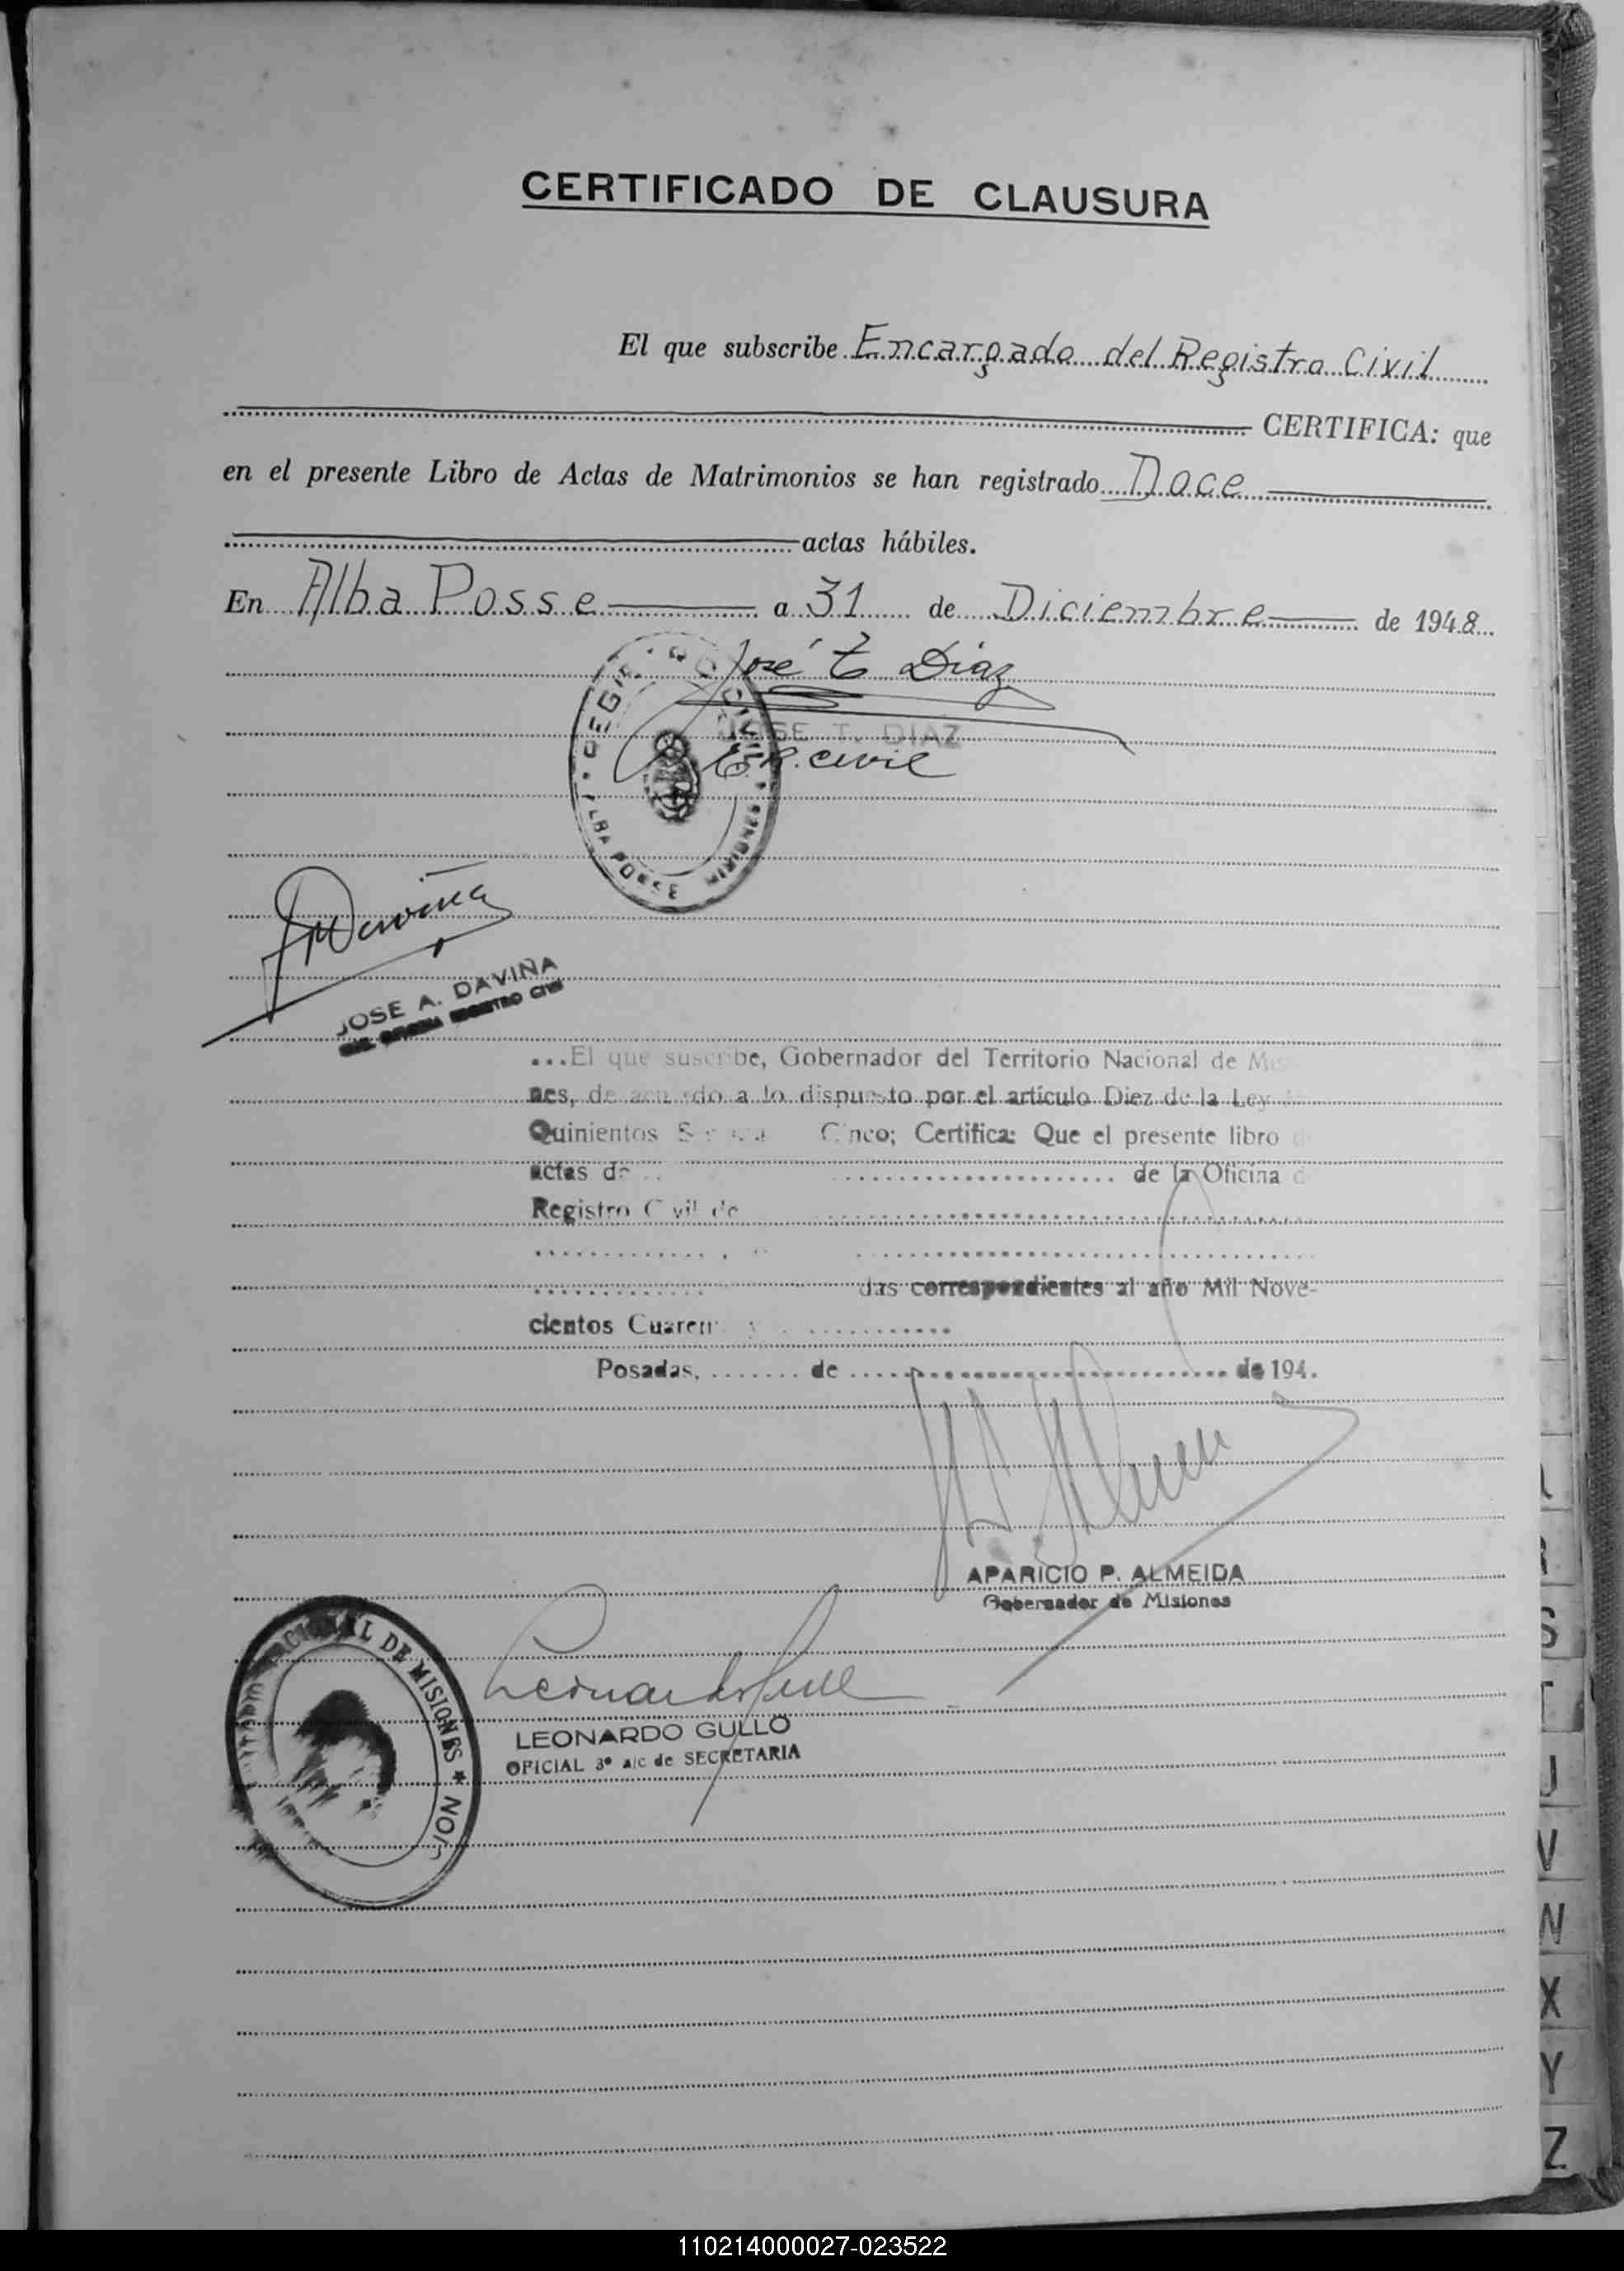 CERTIFICADO DE CLAUSURA
El que subscribe Encargado del Registro Civil
CERTIFICA: que
en el presente Libro de Actas de Matrimonios se han registrado Doce
actas hábiles.
En Alba Posse a 31 de Diciembre de 1948
José T Diaz
JOSE T. DIAZ
E. R. civil
REGISTRO CIVIL
ALBA POSSE MISIONES
JDaviña
JOSE A. DAVIÑA
REGISTRO CIVIL
...El que suscribe, Gobernador del Territorio Nacional de Mis
nes, de acuerdo a lo dispuesto por el artículo Diez de la Ley
Quinientos Cinco; Certifica: Que el presente libro
actas de de la Oficina
Registro Civil de
das correspondientes al año Mil Nove-
cientos Cuaren y
Posadas, de de 194.
APARICIO P. ALMEIDA
Gobernador de Misiones
NACIONAL DE MISIONES
Leonardo Gullo
LEONARDO GULLO
OFICIAL 3º a/c de SECRETARIA
S
T
U
V
W
X
Y
Z
110214000027-023522